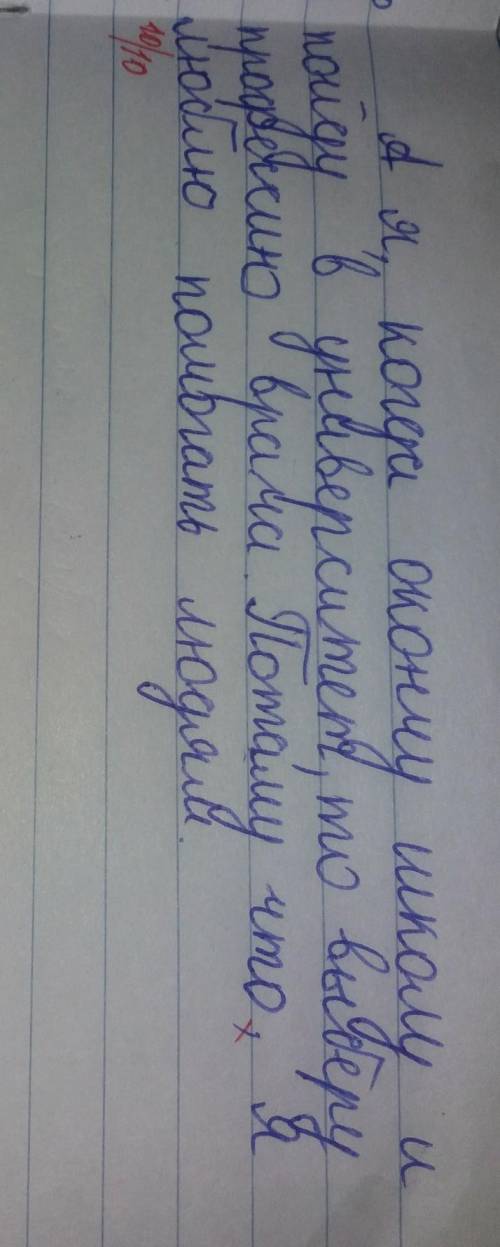 А я, когда окончу школу и
пойду в университет, то выберу
профессию врача. Потому что, я
люблю помогать людям.
10/10